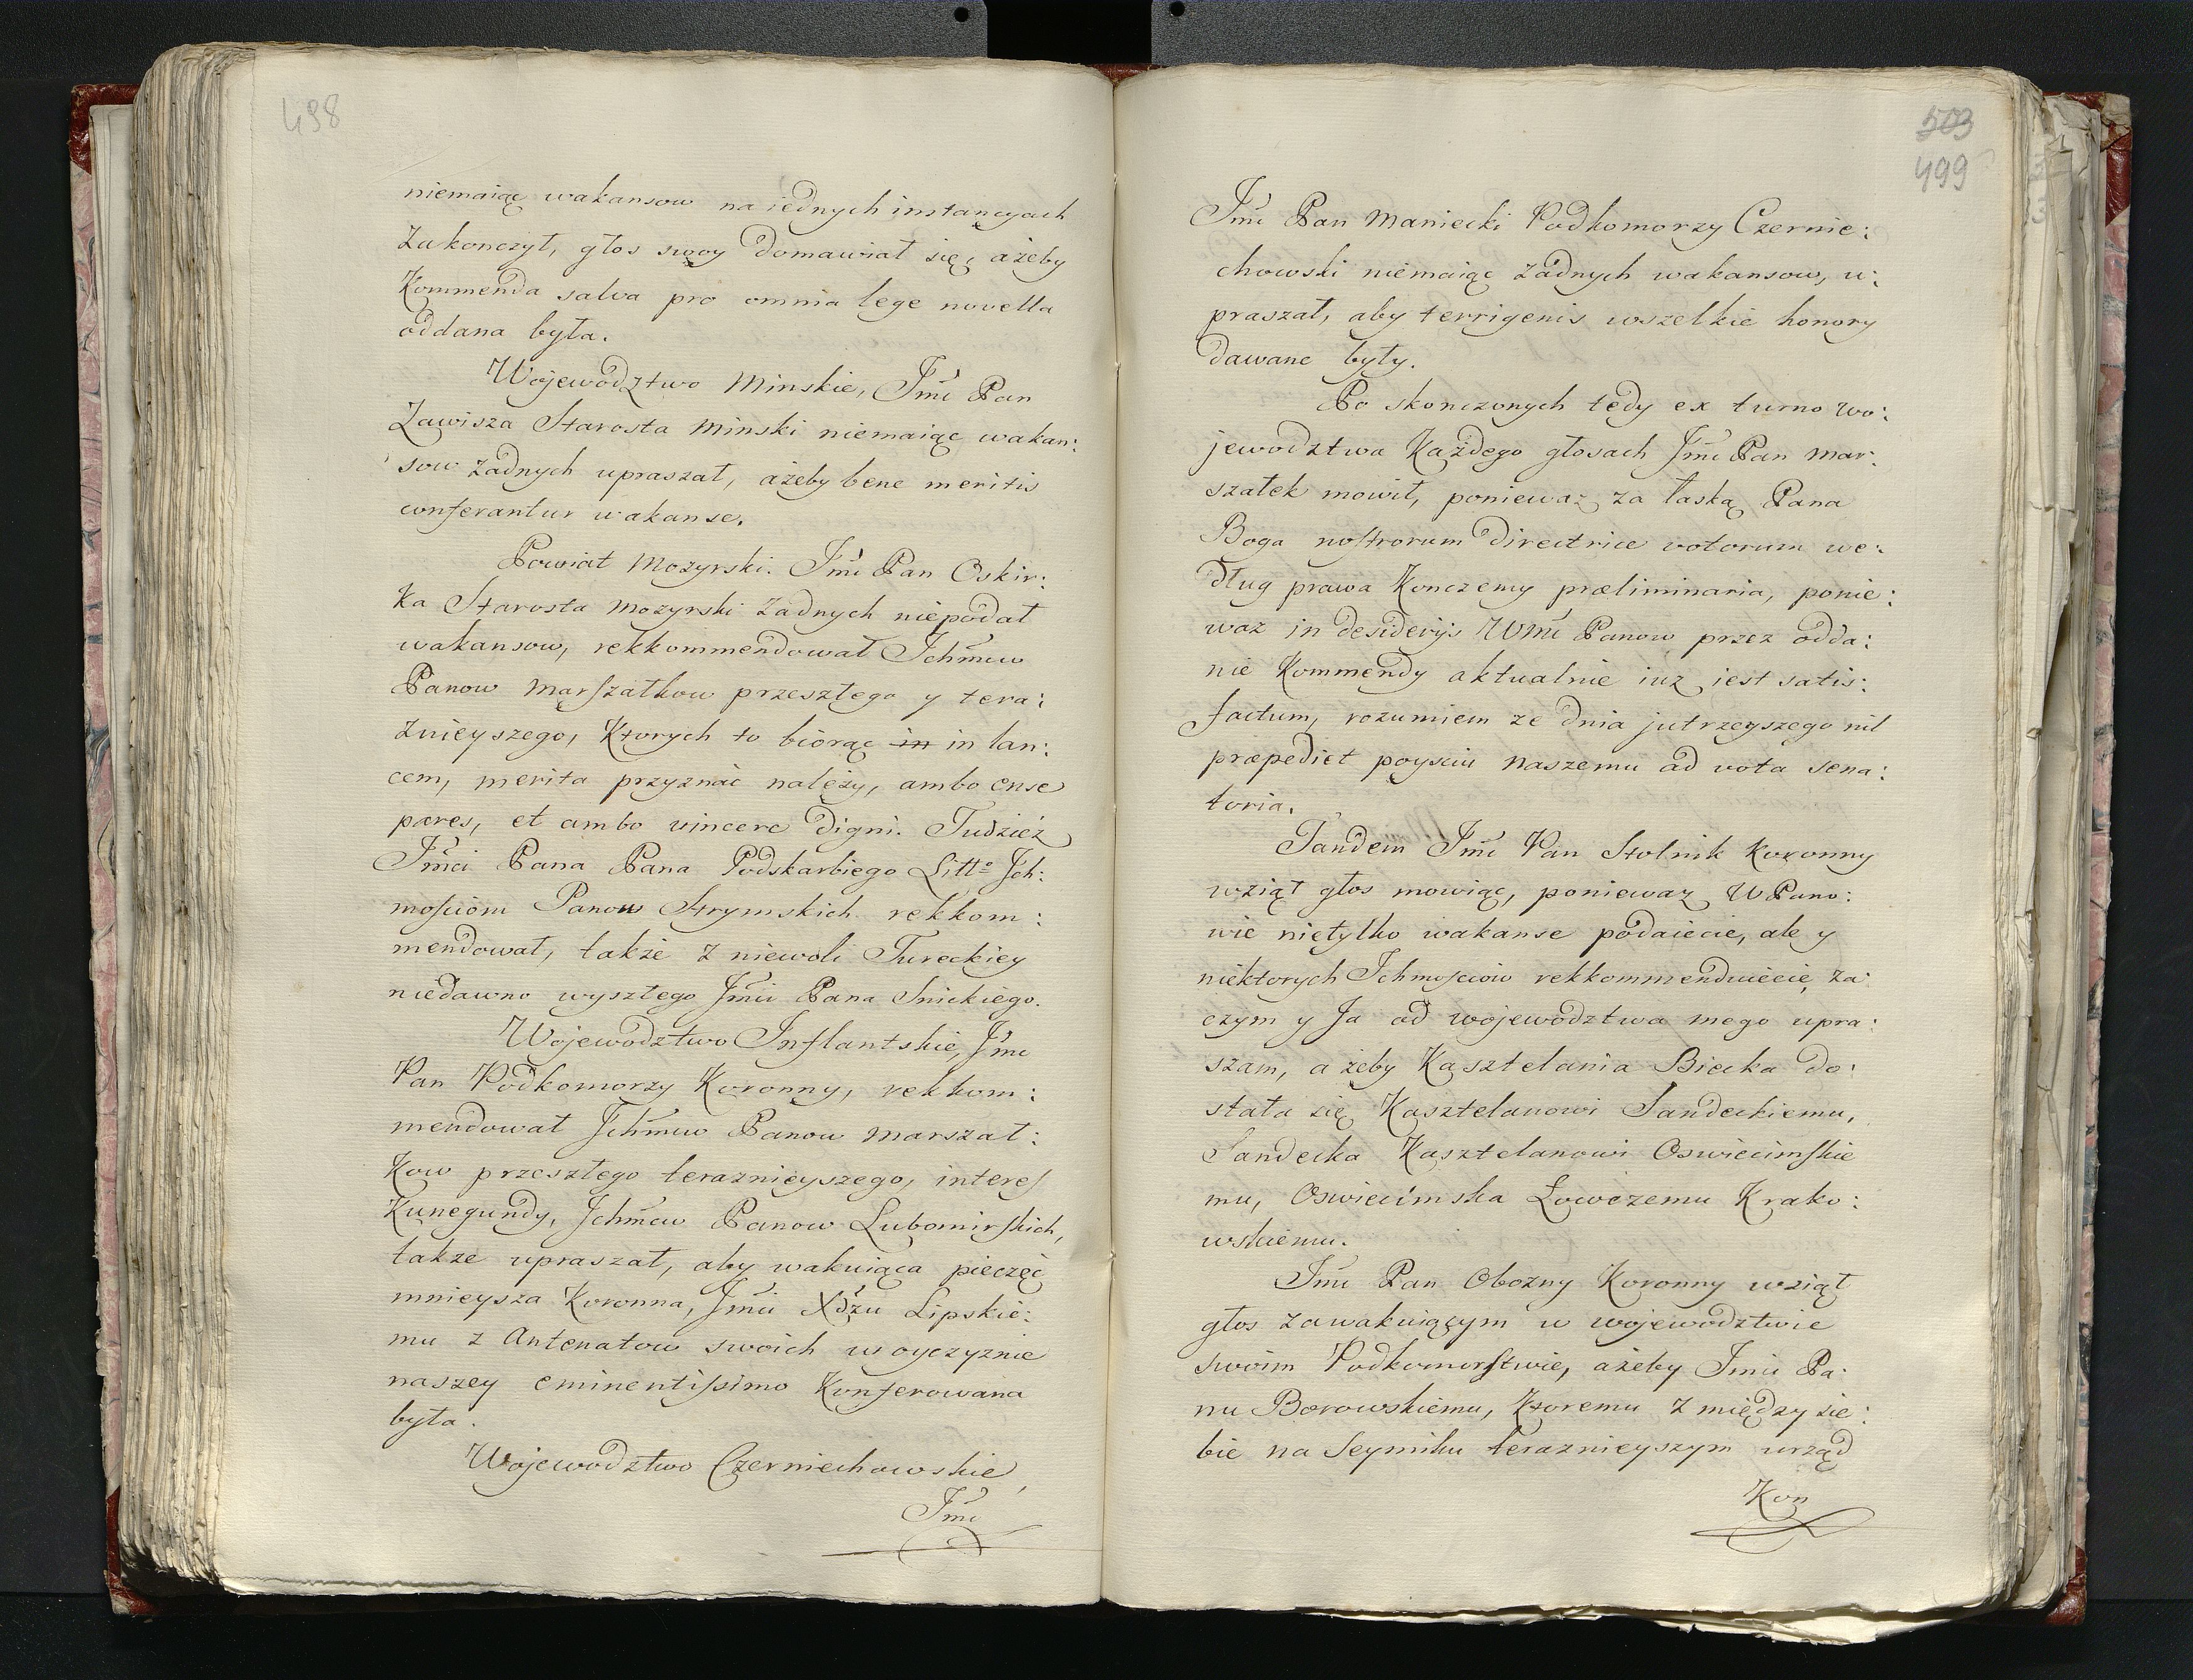 498
niemaiąc wakansow na iednych instancyach
Zakonczył, głos swoy domawiał się, ażeby
Kommenda salva pro omnia lege novella
oddana była.
Wojewodztwo Minskie, Jmć Pan
Zawisza Starosta Minski niemaiąc wakan:
sow żadnych upraszał, ażeby bene meritis
conferantur wakanse.
Powiat Mozyrski. Jmć Pan Oskir:
ka Starosta Mozyrski żadnych niepodał
wakansow, rekkommendował Ichmćw
Panow Marszałkow przeszłego y tera:
znieyszego, Ktorych to biorąc in in lan:
cem, merita przyznać należy, ambo ense
pares, et ambo vincere digni. Tudzież
Jmci Pana Pana Podskarbiego Litto Jch:
mościom Panow Strymskich rekkom:
mendował, także z niewoli Tureckiey
niedawno wyszłego Jmći Pana Snickiego.
Wojewodztwo Inflantskie, Jmć
Pan Podkomorzy Koronny, rekkom:
mendował Jchmćw Panow Marszał:
kow przeszłego teraznieyszego, interes
Kunegundy, Jchmćw Panow Lubomirskich,
takze upraszał, aby wakuiąca pieczęć
mnieysza Koronna, Jmći Xdzu Lipskie:
mu z Antenatow swoich w oyczyznie
naszey eminentissimo Konferowana
była.
Wojewodztwo Czerniechowskie,
Jmć
503
499
Jmć Pan Maniecki Podkomorzy Czernie:
chowski niemaiąc żadnych wakansow, u:
praszał, aby terrigenis wszelkie honory
dawane były.
Po skonczonych tedy ex turno wo:
jewodztwa Każdego głosach Jmć Pan Mar:
szałek mowił, poniewaz za łaską Pana
Boga nostrorum directrice votorum we:
dług prawa Konczemy præliminaria, ponie:
waz in desiderijs Wmć Panow przez odda:
nie Kommendy aktualnie iuz iest satis:
factum, rozumiem ze dnia jutrzeyszego nil
præpediet poysciu naszemu ad vota sena:
toria.
Tandem Jmć Pan Stolnik Koronny
wziął głos mowiąc, poniewaz WPano:
wie nietylko wakanse podaiecie, ale y
niektorych Ichmosciow rekkommenduiecie, za:
czym y Ja od wojewodztwa mego upra:
szam, a żeby Kasztelania Biecka do:
stała się Kasztelanowi Sandeckiemu,
Sandecka Kasztelanowi Oswiecimskie
mu, Oswiecimska Łowczemu Krako:
wskiemu.
Jmć Pan Obozny Koronny wziął
głos zawakuiącym w wojewodztwie
swoim Podkomorstwie, ażeby Jmći Pa:
nu Borowskiemu, Ktoremu z między sie:
bie na Seymiku teraznieyszym urząd
Kon